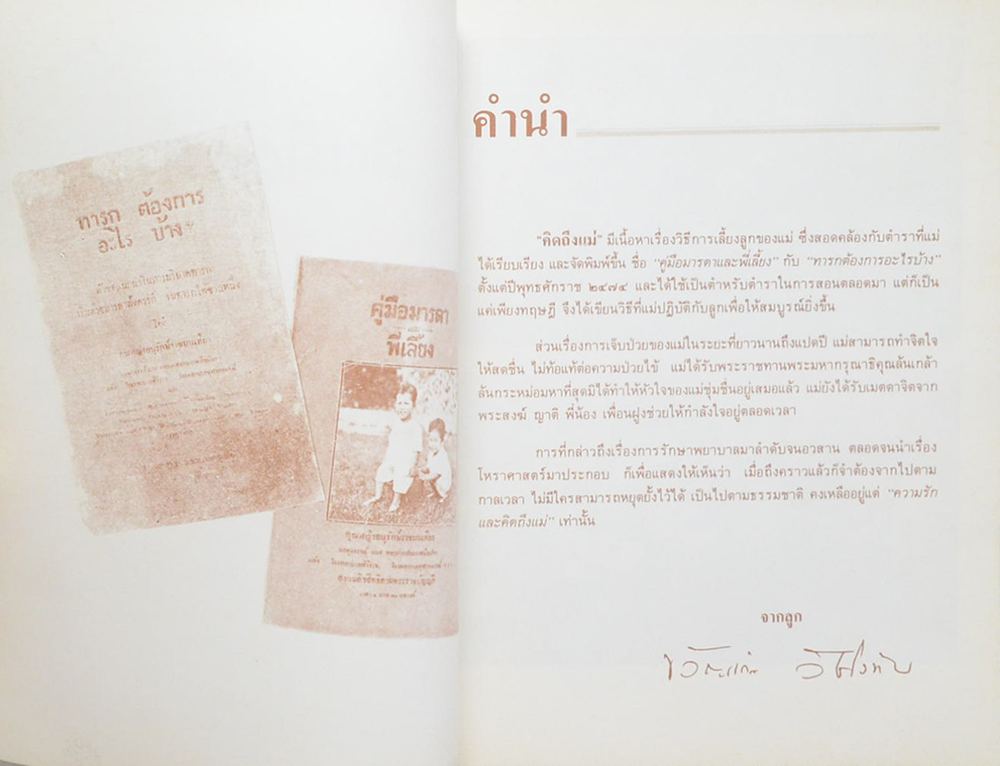 ทารก ต้องการ
อะไร บ้าง
คู่มือมารดา
และ
พี่เลี้ยง
คุณหญิงอนุรักษ์ราชมณเฑียร
คำนำ
"คิดถึงแม่" มีเนื้อหาเรื่องวิธีการเลี้ยงลูกของแม่ ซึ่งสอดคล้องกับตำราที่แม่
ได้เรียบเรียง และจัดพิมพ์ขึ้น ชื่อ "คู่มือมารดาและพี่เลี้ยง" กับ "ทารกต้องการอะไรบ้าง"
ตั้งแต่ปีพุทธศักราช ๒๔๗๔ และได้ใช้เป็นตำหรับตำราในการสอนตลอดมา แต่ก็เป็น
แค่เพียงทฤษฎี จึงได้เขียนวิธีที่แม่ปฏิบัติกับลูกเพื่อให้สมบูรณ์ยิ่งขึ้น
ส่วนเรื่องการเจ็บป่วยของแม่ในระยะที่ยาวนานถึงแปดปี แม่สามารถทำจิตใจ
ให้สดชื่น ไม่ท้อแท้ต่อความป่วยไข้ แม่ได้รับพระราชทานพระมหากรุณาธิคุณล้นเกล้า
ล้นกระหม่อมหาที่สุดมิได้ทำให้หัวใจของแม่ชุ่มชื่นอยู่เสมอแล้ว แม่ยังได้รับเมตตาจิตจาก
พระสงฆ์ ญาติ พี่น้อง เพื่อนฝูงช่วยให้กำลังใจอยู่ตลอดเวลา
การที่กล่าวถึงเรื่องการรักษาพยาบาลมาลำดับจนอวสาน ตลอดจนนำเรื่อง
โหราศาสตร์มาประกอบ ก็เพื่อแสดงให้เห็นว่า เมื่อถึงคราวแล้วก็จำต้องจากไปตาม
กาลเวลา ไม่มีใครสามารถหยุดยั้งไว้ได้ เป็นไปตามธรรมชาติ คงเหลืออยู่แต่ "ความรัก
และคิดถึงแม่" เท่านั้น
จากลูก